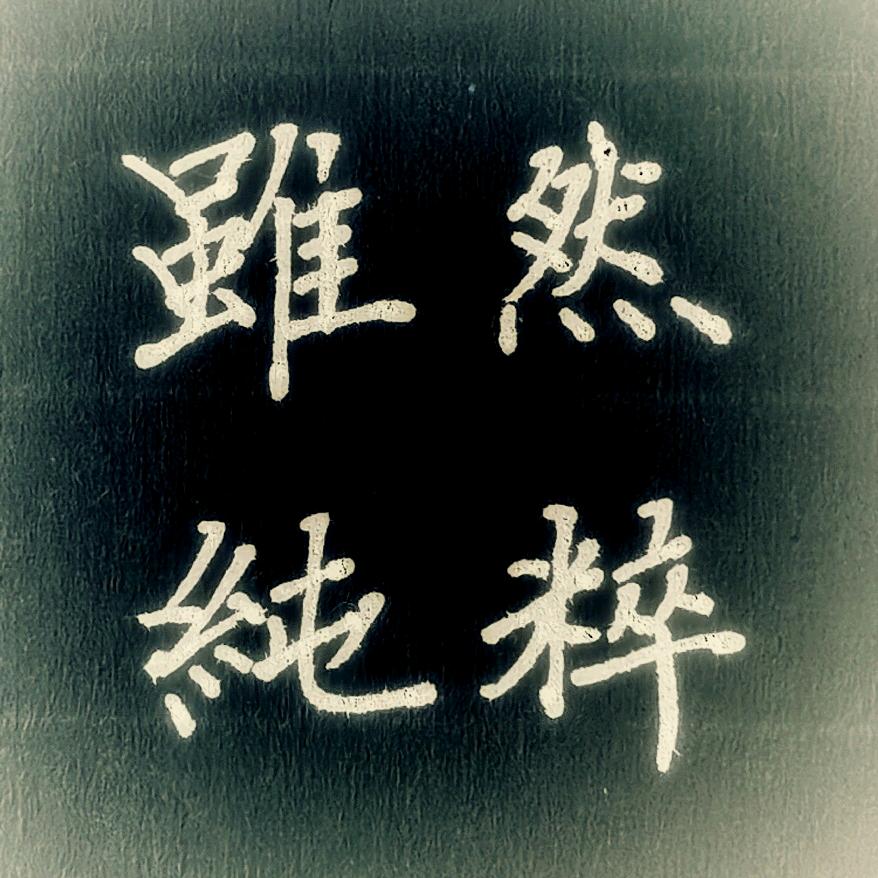 雖然
純粹